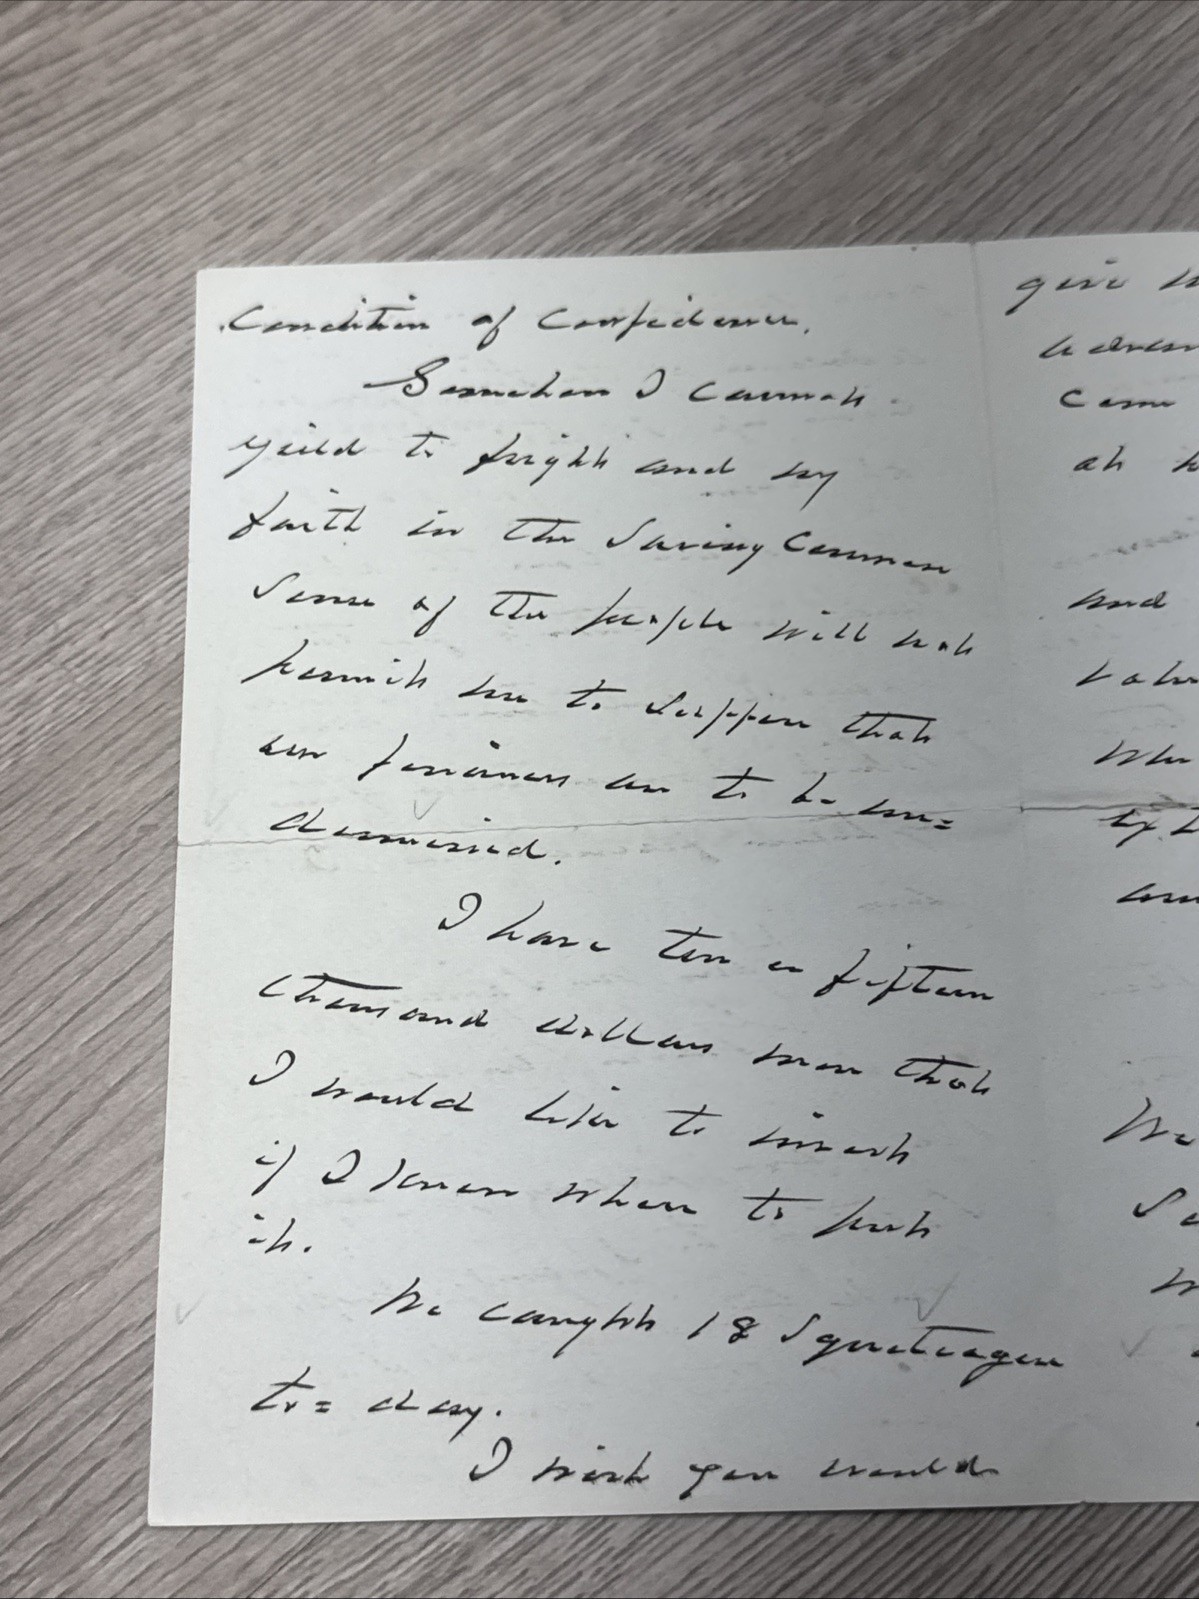 Condition of Confidence.
Somehow I cannot
yeild to fright and my
faith in the Saving Common
Sense of the people will not
permit me to suppose that
our are to be un=

I have ten or fifteen
thousand dollars more that
I would like to invest
if I knew where to put
it.
We caught 18 Squeteague
to= day.
I wish you would
give
Come
at
and
We